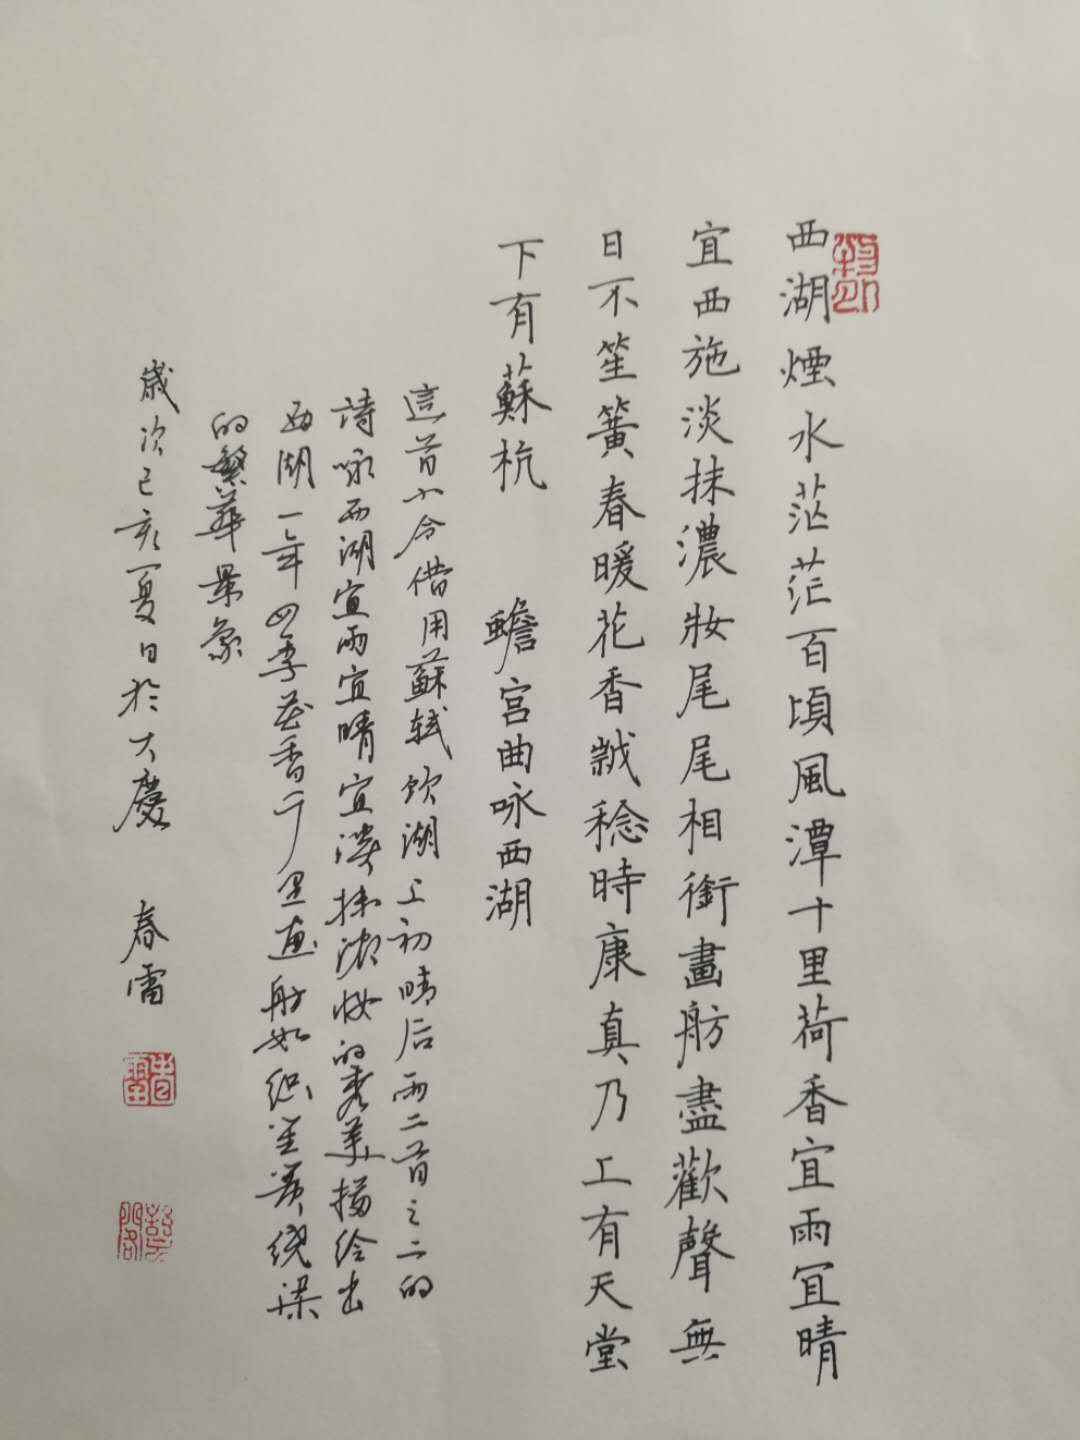 西湖煙水茫茫百頃風潭十里荷香宜雨宜晴
宜西施淡抹濃妝尾尾相銜畫舫盡歡聲無
日不笙簧春暖花香歲稔時康真乃上有天堂
下有蘇杭 蟾宮曲咏西湖
這首小令借用蘇軾飲湖上初晴后雨二首之二的
詩咏西湖宜雨宜晴宜淡抹濃妝的秀美描绘出
西湖一年四季花香千里画舫如织笙簧绕梁
的繁華景象
歲次己亥夏日於大慶 春雷
春雷